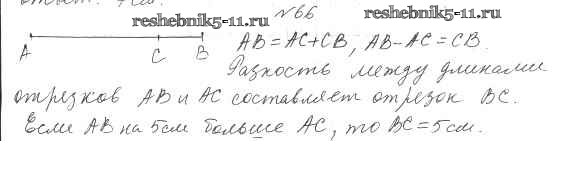 reshebnik5-11.ru №66 reshebnik5-11.ru
A C B AB = AC+CB, AB-AC = CB.
Разность между длинами
отрезков AB и AC составляет отрезок BC.
Если AB на 5 см больше AC, то BC = 5 см.